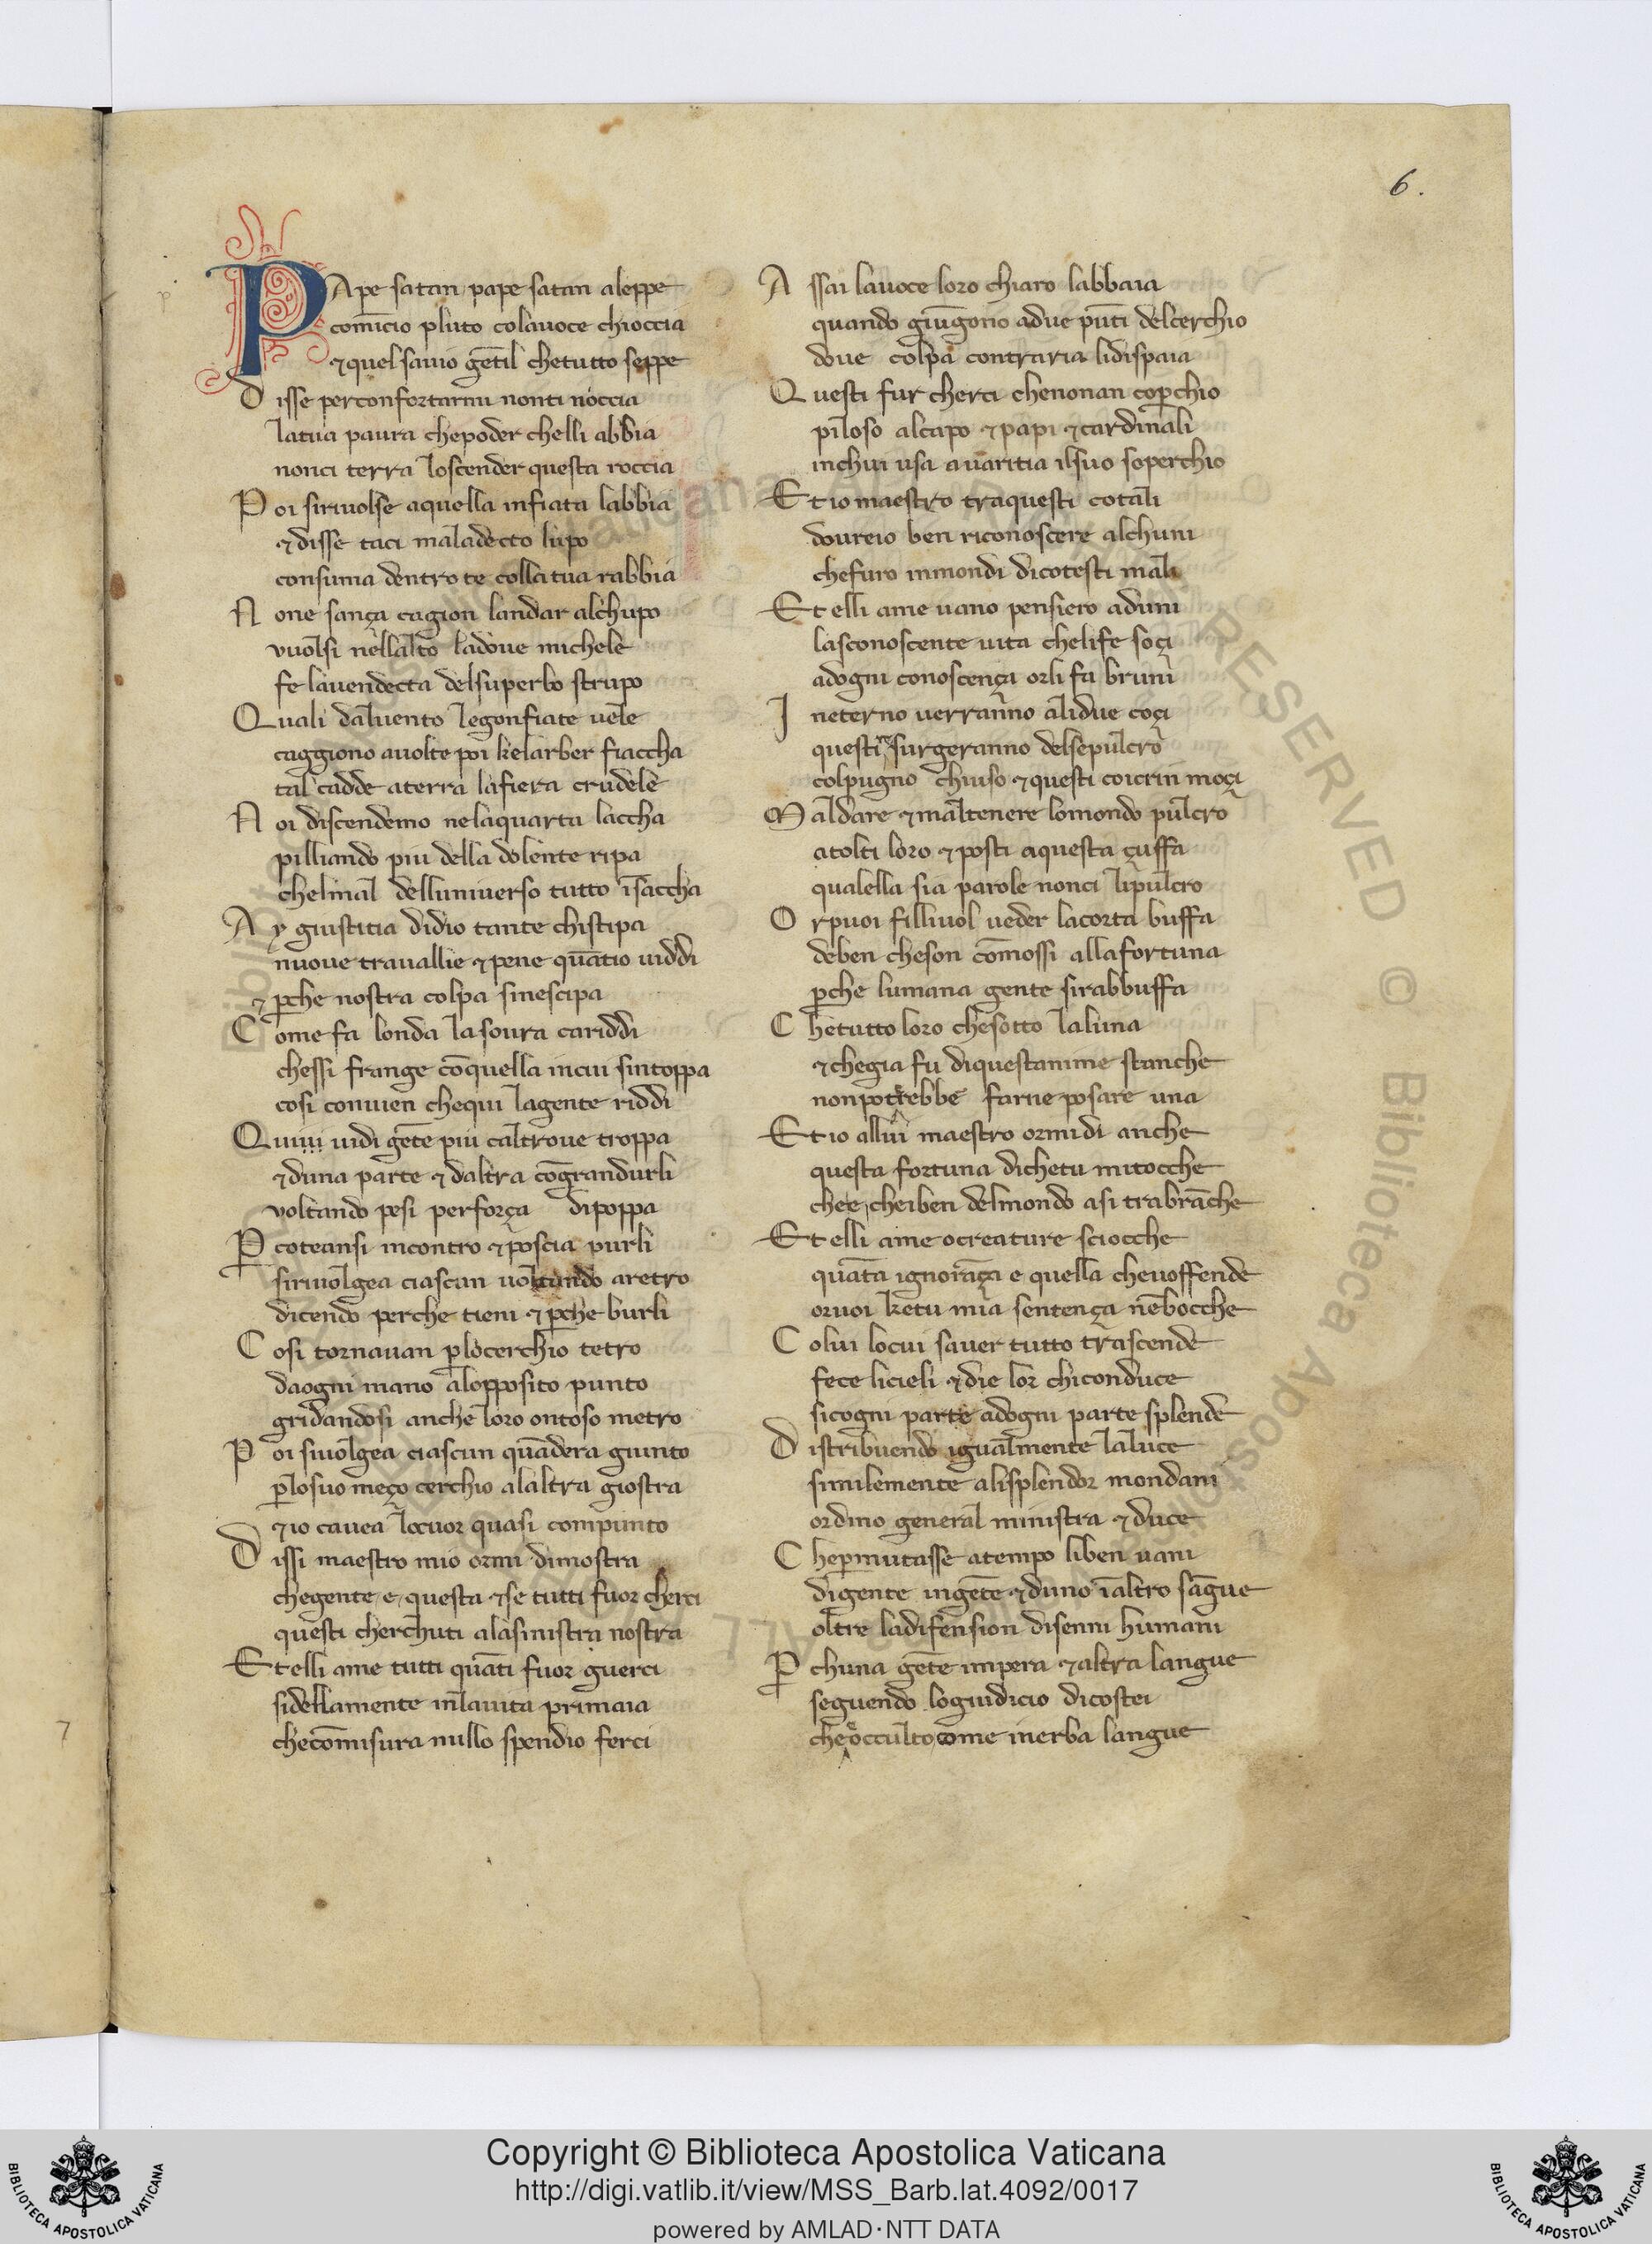 6.
PApe satan pape satan aleppe
comīcio pluto colauoce chioccia
⁊quel sauio gētil chetutto seppe
Disse perconfortarmi nonti noccia
latua paura chepoder chelli abbia
nonci terra loscender questa roccia
Poi siriuolse aquella infiata labbia
⁊disse taci maladecto lupo
consuma dentro te collatua rabbia
None sança cagion landar alchupo
vuolsi nellalto ladoue michele
fe lauendecta delsuperbo strupo
Quali daluento legonfiate uele
caggiono auolte poi kelarber fiaccha
tal cadde aterra lafiera crudele
Noi discendemo nelaquarta laccha
pilliando piu della dolente ripa
chelmal delluniuerso tutto īsaccha
Ay giustitia didio tante chistipa
nuoue trauallie ⁊pene quātio uiddi
⁊ ꝑche nostra colpa sinescipa
Come fa londa lasoura cariddi
chessi frange cōquella incui sintoppa
cosi conuien chequi lagente riddi
Quiui uidi gēte piu caltroue troppa
⁊duna parte ⁊daltra cōgrandurli
voltando pesi perforça dipoppa
Ꝑcoteansi incontro ⁊poscia purli
siriuolgea ciascun uoltando aretro
dicendo perche tieni ⁊ ꝑche burli
Cosi tornauan ꝑlocerchio tetro
daogni mano alopposito punto
gridandosi anche loro ontoso metro
Poi siuolgea ciascun quādera giunto
ꝑlosuo meço cerchio alaltra giostra
⁊io cauea locuor quasi compunto
Dissi maestro mio ormi dimostra
chegente e questa ⁊se tutti fuor cherci
questi cherchuti alasinistra nostra
Et elli ame tutti quāti fuor guerci
sidellamente inlauita primaia
checōmisura nullo spendio ferci
Assai lauoce loro chiaro labbaia
quando giūgono adue pūti delcerchio
doue colpa contraria lidispaia
Questi fur cherci chenonan coꝑchio
piloso alcapo ⁊papi ⁊cardinali
inchui usa auaritia ilsuo soperchio
Et io maestro traquesti cotali
doureio ben riconoscere alchuni
chefuro inmondi dicotesti mali
Et elli ame uano pensiero aduni
lasconoscente uita chelife soçi
adogni conoscença orli fa bruni
Ineterno uerranno alidue coçi
questi resurgeranno delsepulcro
colpugno chiuso ⁊questi coicrin moçi
Maldare ⁊maltenere lomondo pulcro
atolti loro ⁊posti aquesta çuffa
qualella sia parole nonci lipulcro
Orpuoi filliuol ueder lacorta buffa
deben cheson cōmossi allafortuna
ꝑche lumana gente sirabbuffa
Chetutto loro chesotto laluna
⁊chegia fu diquestanime stanche
nonpotrebbe farne posare una
Et io allui maestro ormidi anche
questa fortuna dichetu mitocche
chee, cheiben delmondo asi trabrāche
Et elli ame ocreature sciocche
quāta ignorāça e quella cheuoffende
oruoi ketu mia sentença nēbocche
Colui locui sauer tutto trascende
fece licieli ⁊die lor chiconduce
sicogni parte adogni parte splende
Distribuendo igualmente laluce
similemente alisplendor mondani
ordino general ministra ⁊duce
Cheꝑmutasse atempo liben uani
digente ingēte ⁊duno īaltro sāgue
oltre ladifension disenni humani
Ꝑchuna gēte impera ⁊altra langue
seguendo logiudicio dicostei
chee occulto come inerba langue
7
Copyright © Biblioteca Apostolica Vaticana
http://digi.vatlib.it/view/MSS_Barb.lat.4092/0017
powered by AMLAD·NTT DATA
BIBLIOTECA APOSTOLICA VATICANA
BIBLIOTECA APOSTOLICA VATICANA